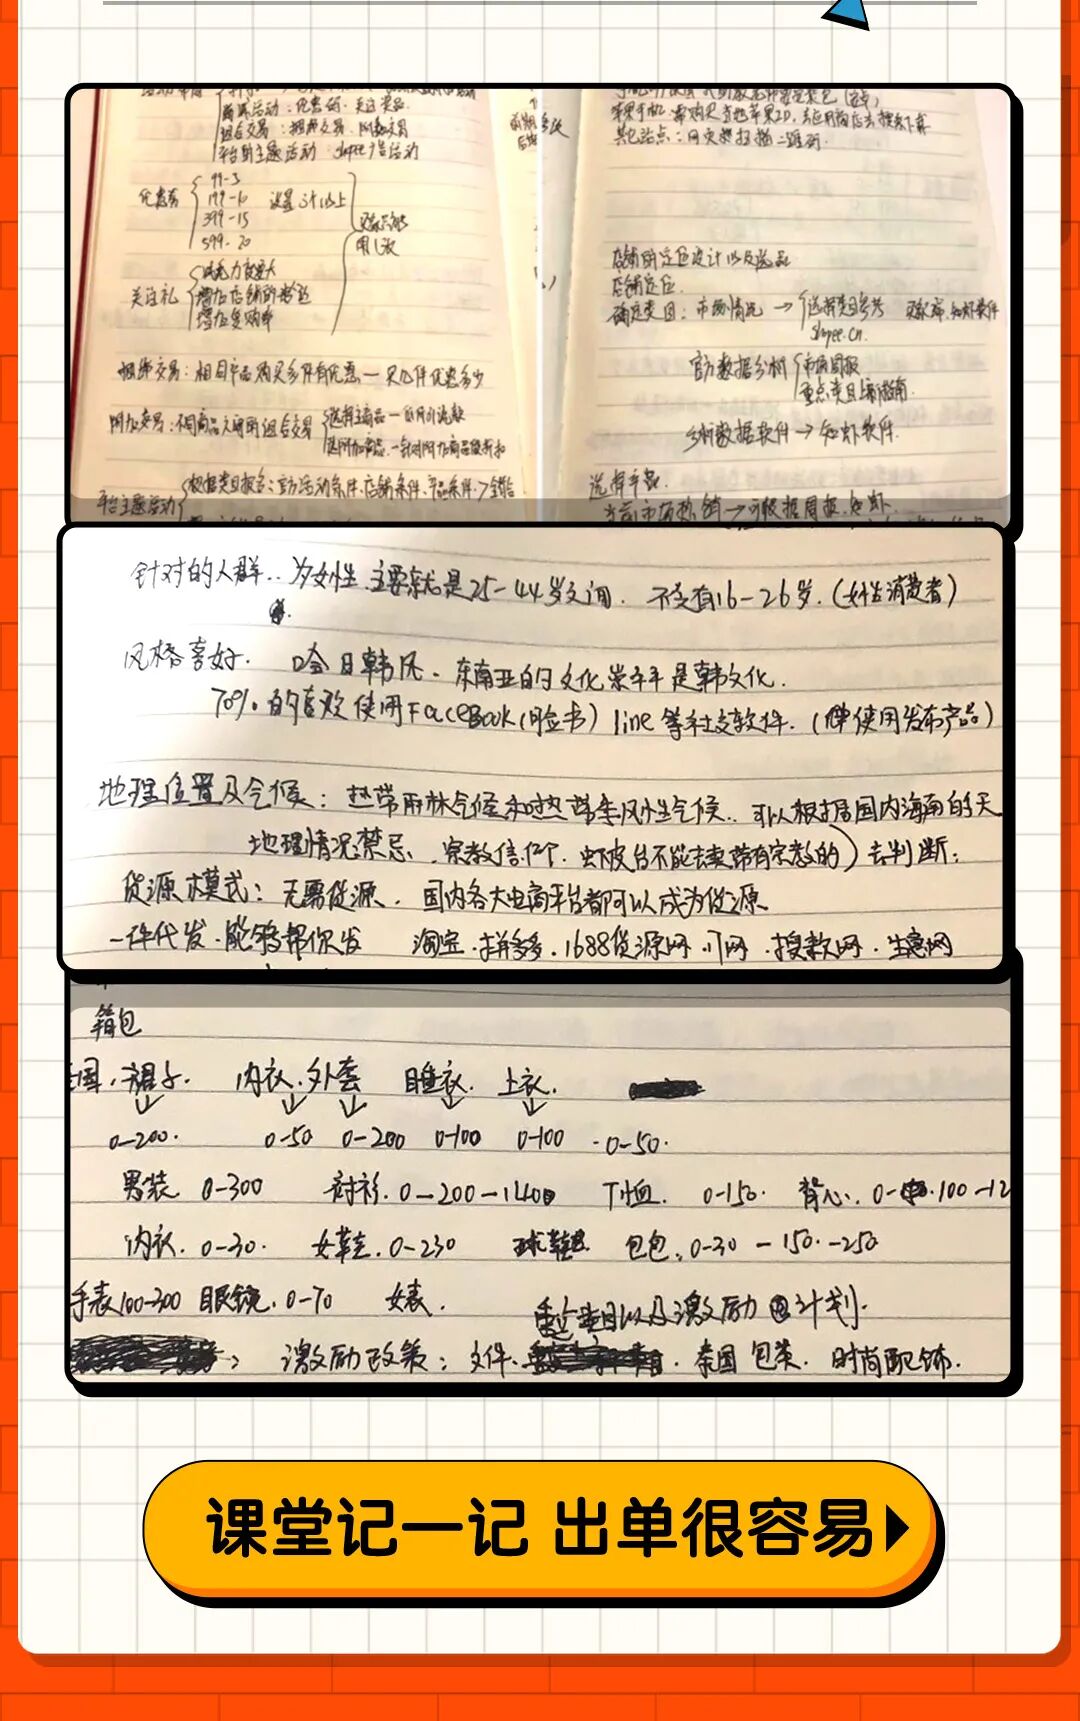 商活动：优惠券.关注奖品.
组合交易：捆绑交易.附加交易
平台主题活动 shopee广告活动
优惠券
99-3
199-10 设置3个以上
399-15
599-20
买家只能
用1张
关注礼
吸引力度要大
增加店铺的粉丝
增加复购率
捆绑交易：相同产品购买多件有优惠—买几件优惠多少
附加交易：不同商品之间的组合交易
选择主商品
选附加商品.—针对附加商品做折扣
平台主题活动
根据类目报名：官方活动条件.店铺条件.产品条件
苹果手机：需购买当地苹果ID,去应用商店去搜索下载
其它站点：
店铺的定位设计以及选品
店铺定位.
确定类目：市场情况 → 选择类目参考
shopee.cn.
官方数据分析
市场周报
重点类目上新指南.
分析数据软件→知虾软件.
选择产品.
当前市场热销→可根据周报.知虾.
针对的人群..为女性.主要就是25-44岁之间. 不变有16-26岁.(女性消费者)
风格喜好. 哈日韩风.东南亚的文化崇尚是韩文化.
70%的喜欢使用FaceBook(脸书) line等社交软件.(使用发布产品)
地理位置及气候：热带雨林气候和热带季风性气候..可以根据国内海南的天
地理情况禁忌、宗教信仰.虾皮台不能去卖带有宗教的)去判断;
货源模式：无需货源.国内各大电商平台都可以成为货源.
一件代发.能够帮你发 淘宝.拼多多.1688货源网.17网.搜款网.生意网
箱包
国.裙子. 内衣.外套 睡衣. 上衣.
0-200. 0-50 0-200 0-100 0-100 .0-50.
男装 0-300 衬衫.0-200-1400 T恤. 0-150. 背心. 0-100-12
内衣.0-30. 女鞋.0-230 球鞋 包包:0-30-150.-250
手表100-300 眼镜.0-70 女表.
重点类目以及激励计划.
激励政策：文件. 泰国 包类.时尚配饰.
课堂记一记 出单很容易